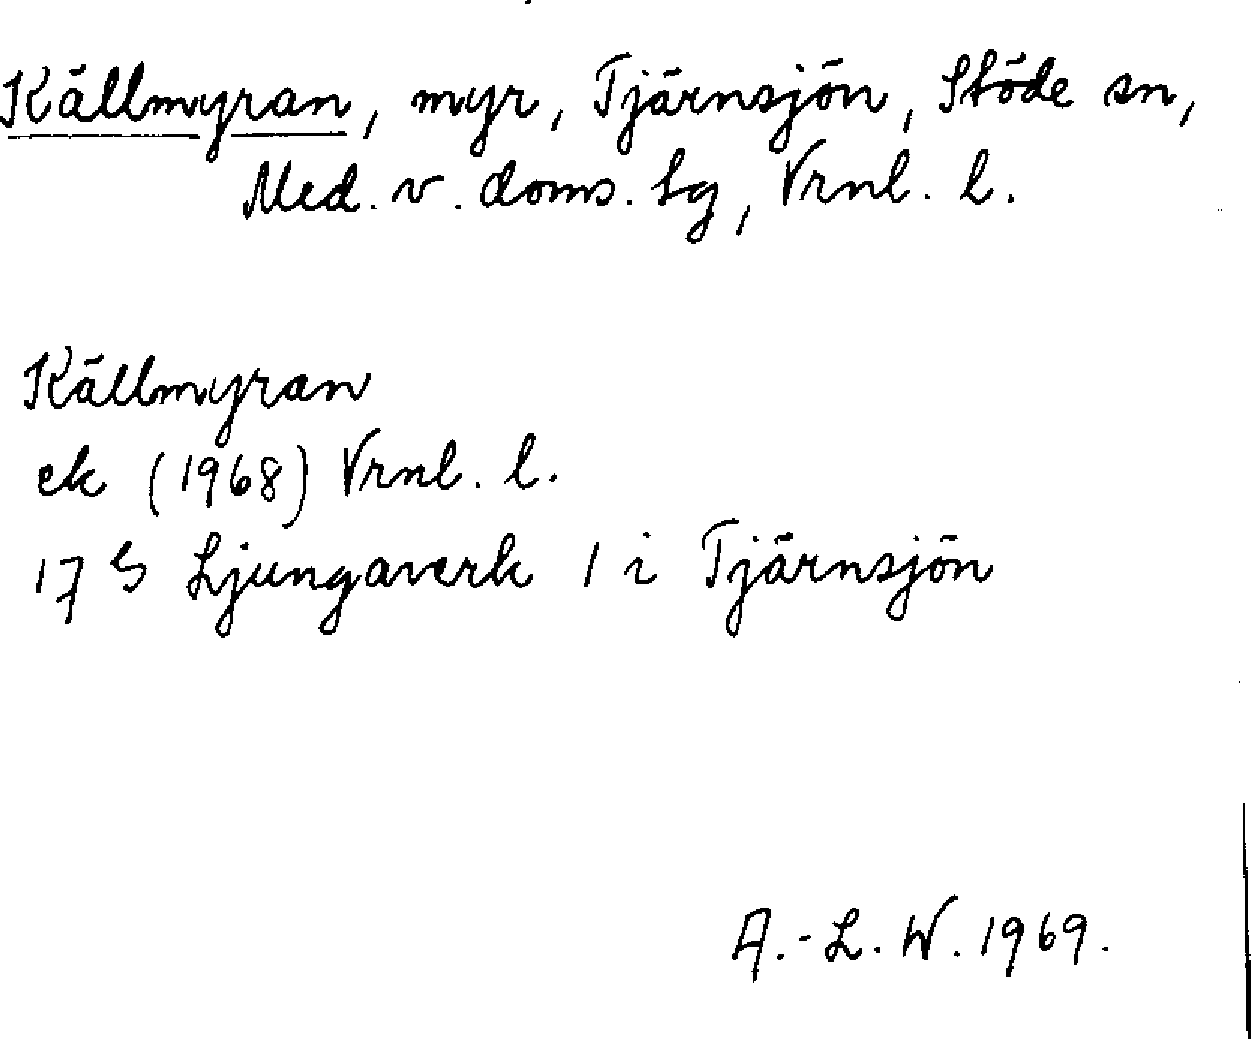 Källmyran, myr, Tjärnsjön, Stöde sn,
Med. v. doms. tg, Vrnl. l.
Källmyran
ek (1968) Vrnl. l.
17 G Ljungaverk 1 i Tjärnsjön
A.-L. W. 1969.